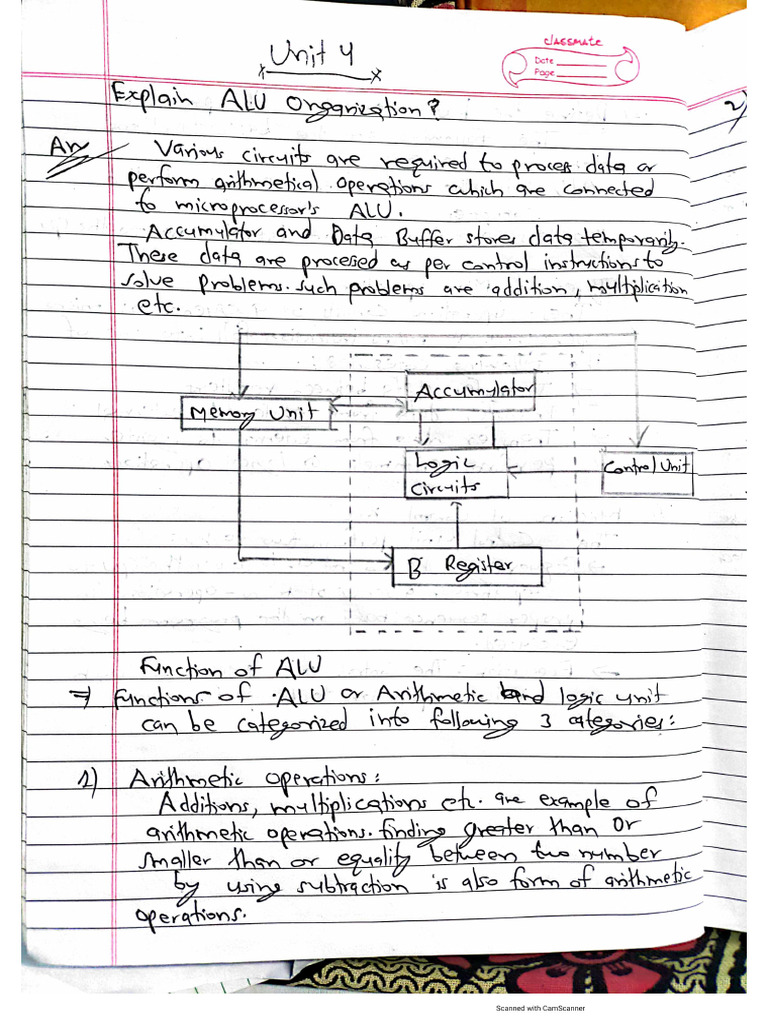 Unit 4
classmate
Date
Page
2)
Explain ALU Organization?
Ans
Various circuits are required to process data or
perform arithmetical operations which are connected
to microprocessor's ALU.
Accumulator and Data Buffer stores data temporarily.
These data are processed as per control instructions to
solve problems. such problems are addition, multiplication
etc.
Accumulator
Memory Unit
Logic
Circuits
Control Unit
B Register
Function of ALU
⇒ Functions of ALU or Arithmetic and logic unit
can be categorized into following 3 categories:
1) Arithmetic operations:
Additions, multiplications etc. are example of
arithmetic operations. finding greater than or
smaller than or equality between two number
by using subtraction is also form of arithmetic
operations.
Scanned with CamScanner